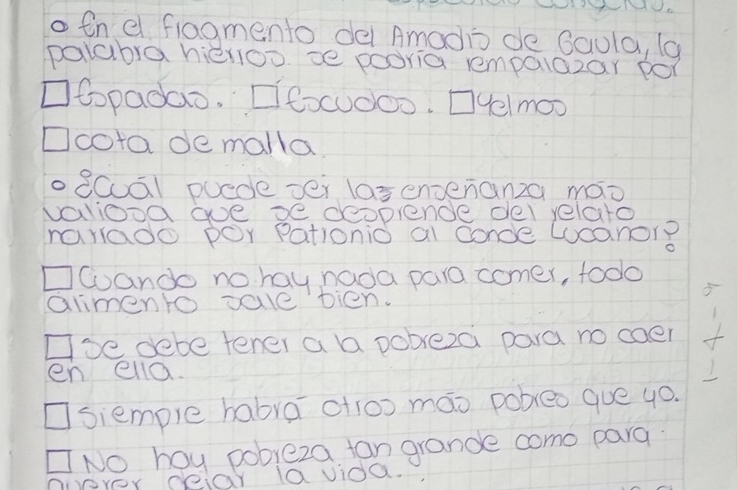 o En el fragmento del Amadís de Gaula, la
palabra hierros se podría rempalazar por
□ Espadas. □ Escudos. □ Yelmos
□ cota de malla.
o ¿Cuál puede ser las enseñanza más
valiosa que se desprende del relato
narrado por Patronio al Conde Lucanor?
□ Cuando no hay nada para comer, todo
alimento sale bien.
□ se debe tener a la pobreza para no caer
en ella.
□ siempre habrá otros más pobres que yo.
□ No hay pobreza tan grande como para
querer dejar la vida.